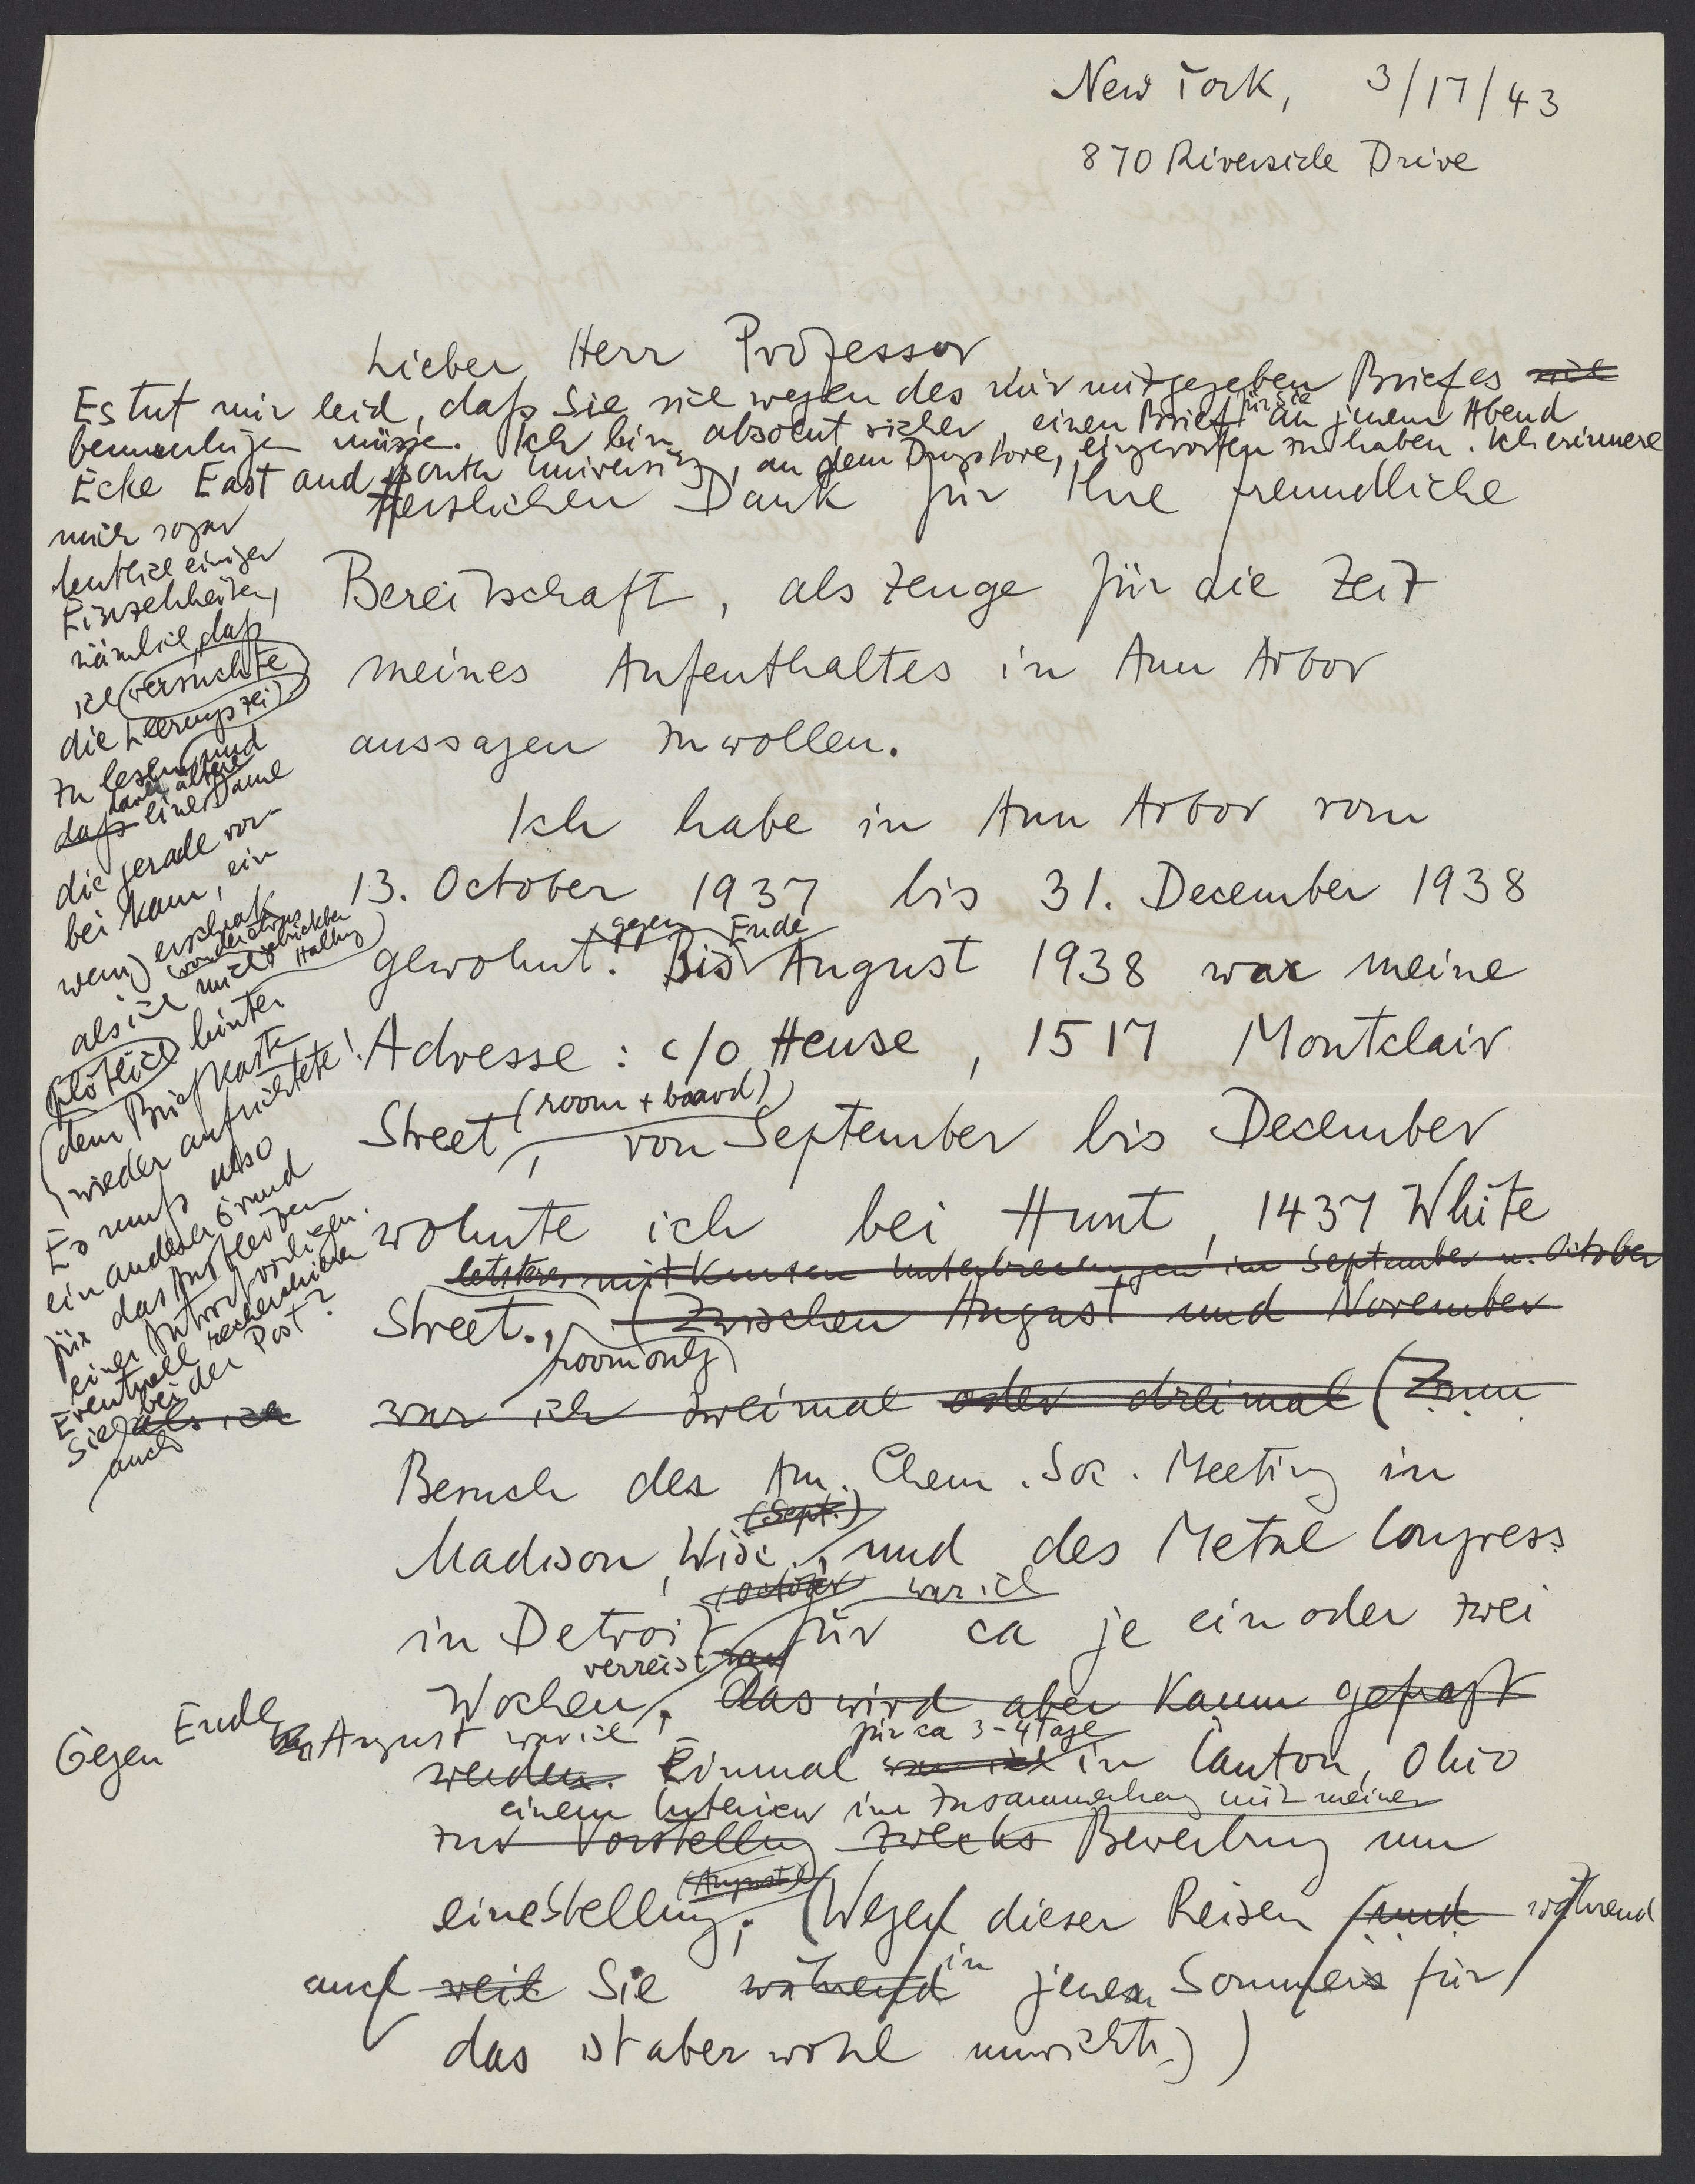 New York, 3/17/43
870 Riverside Drive
Lieber Herr Professor
Es tut mir leid, daß Sie sich wegen des mir mitgegeben Briefes
beunruhigen müssen. Ich bin absolut sicher, einen Brief für Sie an jenem Abend
Ecke East and South University, an dem Drugstore, eingeworfen zu haben. Ich erinnere
mich sogar
deutlich einiger
Einzelheiten,
nämlich, daß
ich versuchte
die Leerungszeit
zu lesen und
daß eine ältere Dame
die gerade vor-
bei kam, ein
wenig erschrak
als ich mich
plötzlich hinter
dem Briefkasten
wieder aufrichtete!
Es muß also
ein anderer Grund
für das Ausbleiben
einer Antwort vorliegen.
Eventuell recherchieren
Sie bei der Post?
auch
als ich
Herzlichen Dank für Ihre freundliche
Bereitschaft, als Zeuge für die Zeit
meines Aufenthaltes in Ann Arbor
aussagen zu wollen.
Ich habe in Ann Arbor vom
13. October 1937 bis 31. December 1938
gegen Ende
gewohnt. Bis August 1938 war meine
Adresse: c/o Hense, 1517 Montclair
(room + board)
Street, von September bis December
wohnte ich bei Hunt, 1437 White
letzteres mit kurzen Unterbrechungen im September u. October
Street., (Zwischen August und November
room only
war ich zweimal oder dreimal (Zum
Besuch des Am. Chem. Soc. Meeting in
(Sept.)
Madison, Wisc., und des Metal Congress
(October war ich
in Detroit für ca je ein oder zwei
verreist war
Wochen. das wird aber kaum gefragt
Gegen Ende August war ich für ca 3-4 Tage
werden. Einmal war ich in Canton, Ohio
einem Interview im Zusammenhang mit meiner
zur Vorstellung zwecks Bewerbung um
(August)
eine Stellung; (Wegen dieser Reisen und während
auch weil Sie während in jenem Sommers für
das ist aber wohl unwichtig)